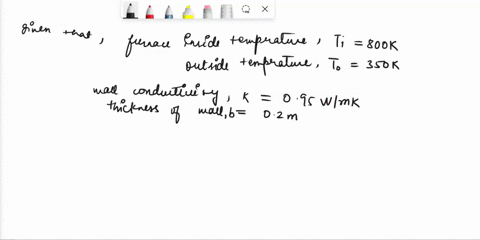 given that, furnace inside temprature, Ti = 800K
outside temprature, To = 350K
wall conductivity, K = 0.95 W/mK
thickness of wall, b = 0.2 m